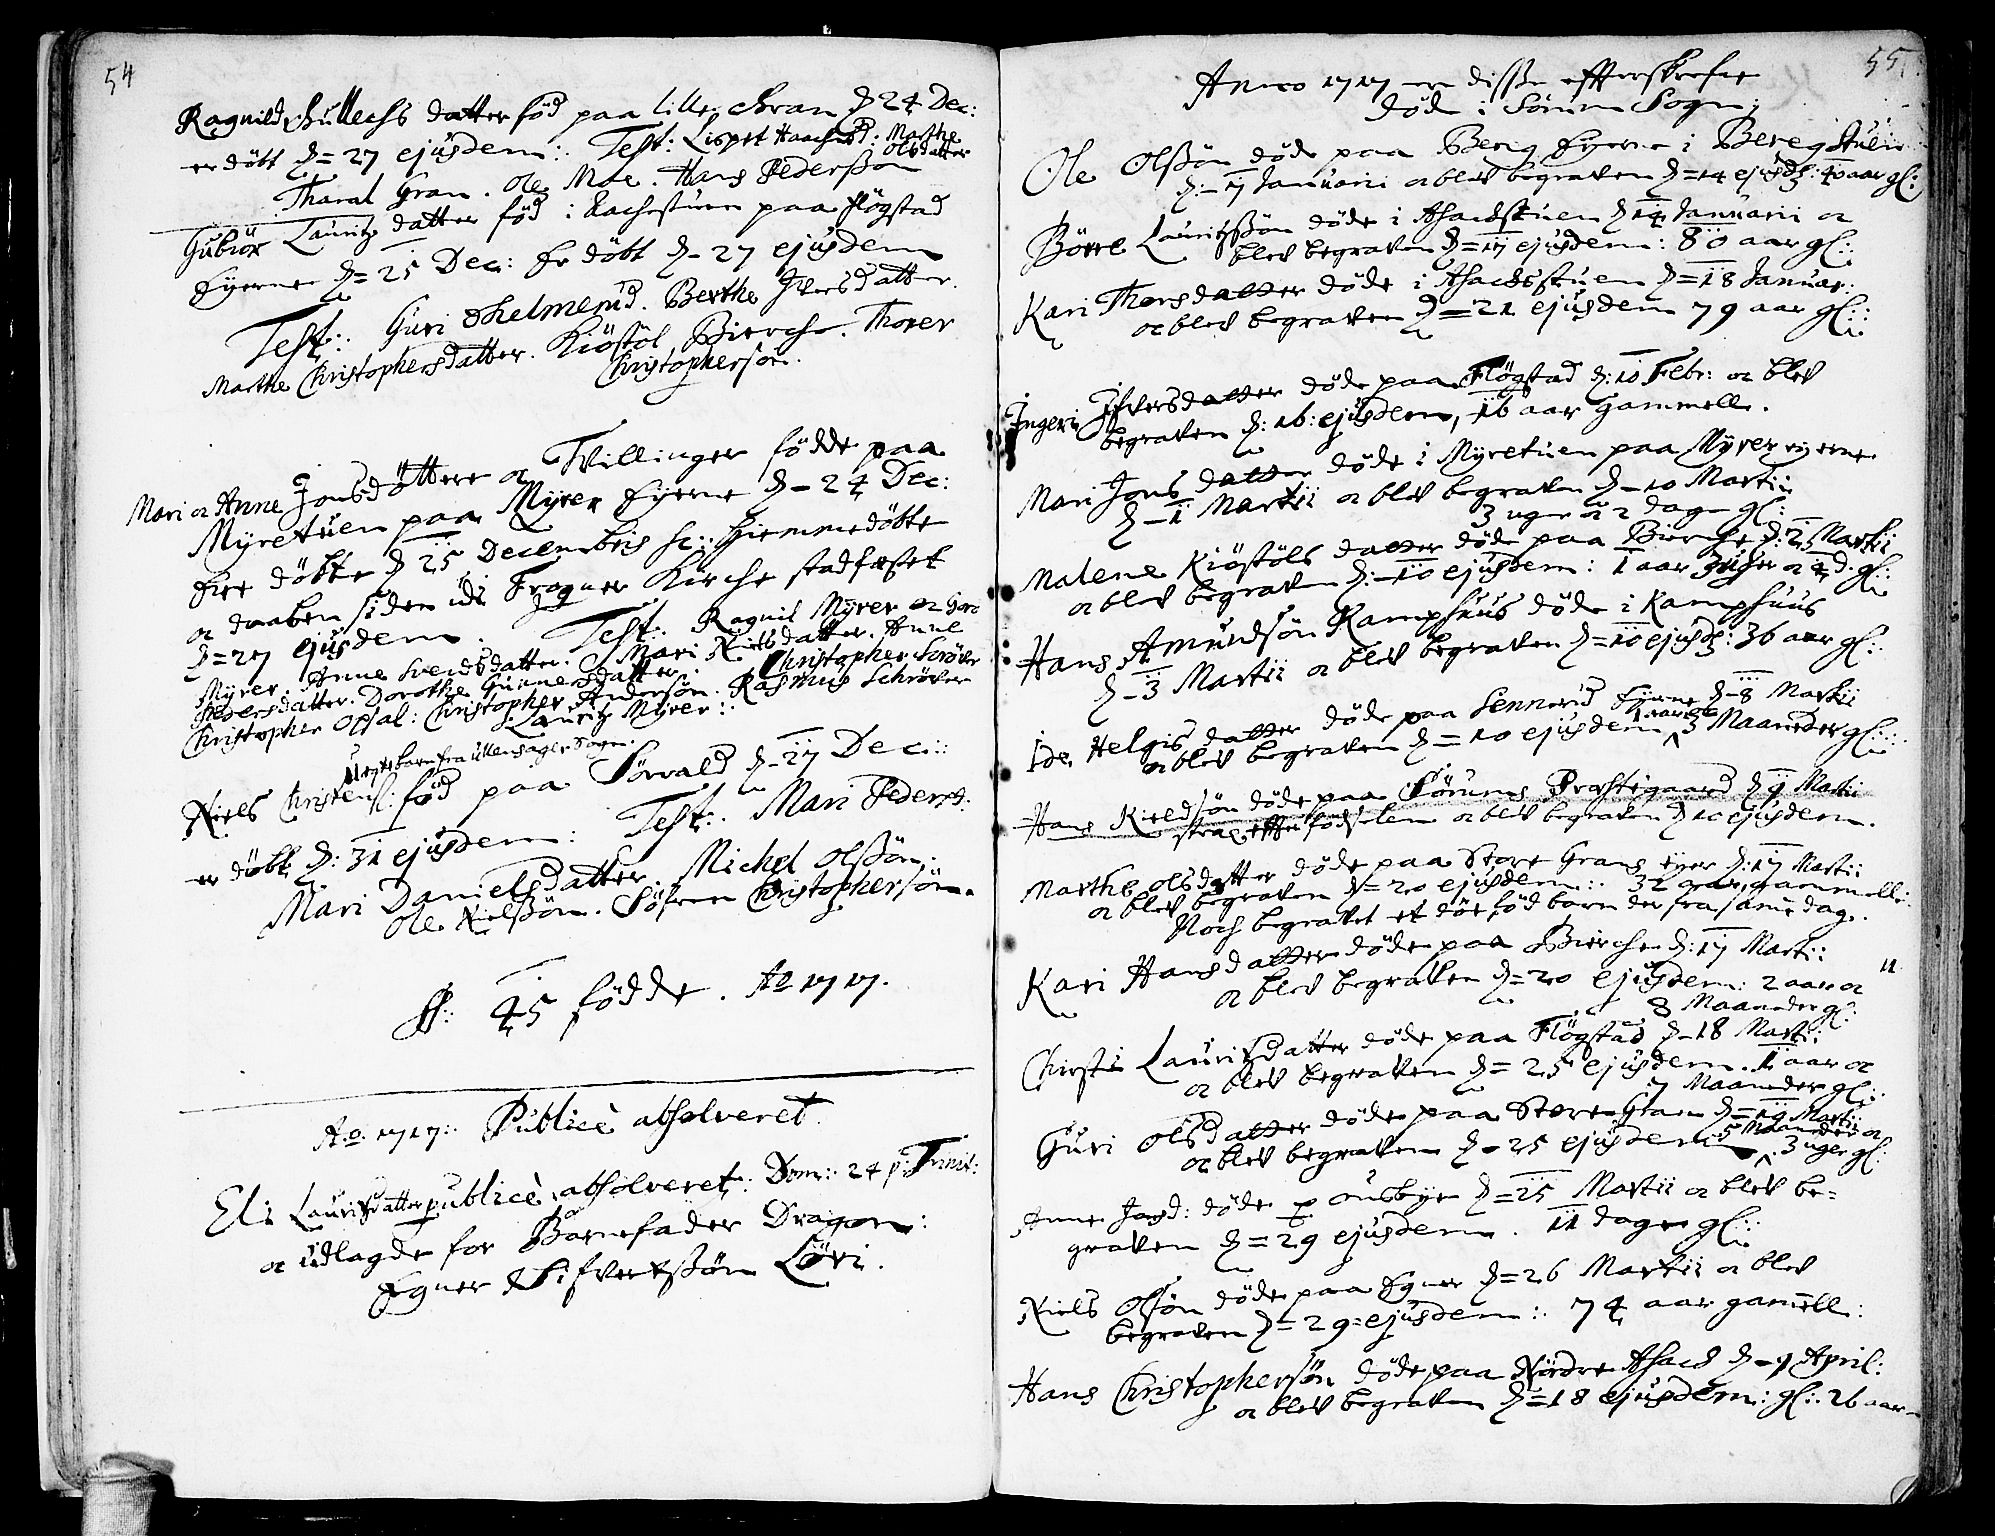 54
Ragnild Gullechs datter föd paa lille Gran d 24 Dec:
er döbt d= 27 ejusdem: Test: Lispet Haachsd: Marthe
Olsdatter
Tharal Gran. Ole Moe. Hans Pederssön
Gubiör Lauritz datter föd i Bachestuen paa Flögstad
Eyerne d= 25 Dec: Er döbt d- 27 ejusdem
Test: Guri Shelmerud. Berthe Ifversdatter.
Marthe Christophersdatter. Kiöstol Bierche. Thorer
Christophersön.
Mari oc Anne Jonsdöttere oc Tvillinger födde paa
Myrstuen paa Myrer Eyerne d- 24 Dec:
Ere döbte d 25 Decembris sc: hiemmedöbte
oc daaben siden udi Frogner Kirche stadfestet
d= 27 ejusdem. Test: Ragnil Myrer oc Goro
Myrer. Anne Svendsdatter. Mari Nielsdatter. Anne
Pedersdatter. Dorothe Gunnersdatter. Christopher Schröder
Christopher Opsal: Christopher Andersön. Rasmus Schröder
Lauritz Myrer:
Uegte barn fra Ullensager Sogn.
Niels Christens: föd paa Sörvald d- 27 Dec:
er döbt d: 31 ejusdem: Test: Mari Pedersd:
Mari Danielsdatter. Michel Olssön.
Ole Nielssön. Söfren Christophersön.
S: 45 födde. Ao 1717.
Ao 1717: Publicè absolveret.
Eli Lauritzdatter publicè absolveret: Dom: 24 p: Trinit:
oc udlagde for Barnefader Dragon:
Egner Sifvertssön Löri.
55
Anno 1717 er disse effterskrefne
döde i Sörum Sogn:
Ole Olssön döde paa Berg Eyerne i Beregstuen
d:- 7 Januarii oc blev begraven d= 14 ejusd: 40 aar gl:
Börre Lauritzsön döde i Asachstuen d 14 Januarii oc
blev begraven d= 17 ejusdem: 80 aar gl:
Kari Thorsdatter döde i Asachsstuen d= 18 Januar:
oc blev begraven d= 21 ejusdem 79 aar gl:
Ingeri Ifversdatter döde paa Flögstad d: 10 Febr: oc blev
begraven d: 16: ejusdem, 16 aar gammell.
Mari Jons datter döde i Myrstuen paa Myrer eyerne
d- 1 Martii oc blev begraven d- 10 Martii
3 uger oc 2 dage gl:
Malene Kiöstöls datter döde paa Bierche d: 2 Martii
oc blev begraven d:- 10 ejusdem: 1 aar 3 uger oc 4 d. gl:
Hans Amundsön Kamphuus döde i Kamphuus
d- 3 Martii oc blev begraven d= 10 ejusd: 36 aar gl:
Ide Helgis datter döde paa Sennerud Eyerne d- 8 Martii
oc blev begraven d= 10 ejusdem 1 aar oc 3 Maaneder gl:
Hans Kieldsön döde paa Sörums Præstegaard d 9 Martii
strax effter födselen oc blev begraven d 10 ejusdem.
Marthe Olsdatter döde paa Store Grans eyer d: 17 Martii
oc blev begraven d= 20 ejusdem: 32 aar gammell:
Noch begravet et död föd barn der fra samme dag.
Kari Hansdatter döde paa Bierche d: 17 Martii
oc blev begraven d= 20 ejusdem: 2 aar oc
8 Maaneder gl:
Chirsti Lauritzdatter döde paa Flögstad d- 18 Martii
oc blev begraven d= 25 ejusdem. 1 aar oc
7 Maaneder gl:
Guri Olsdatter döde paa Store Gran d= 19 Martii
oc blev begraven d- 25 ejusdem 5 Maaneder oc
3 uger gl:
Anne Jonsd: döde p Ousbye d= 25 Martii oc blev be=
graven d= 29 ejusdem. 11 dage gl:
Niels Olsön döde paa Egner d= 26 Martii oc blev
begraven d= 29 ejusdem: 74 aar gamell:
Hans Christophersön döde paa Nördre Asach d- 9 April:
oc blev begraven d= 18 ejusdem: gl: 26 aar